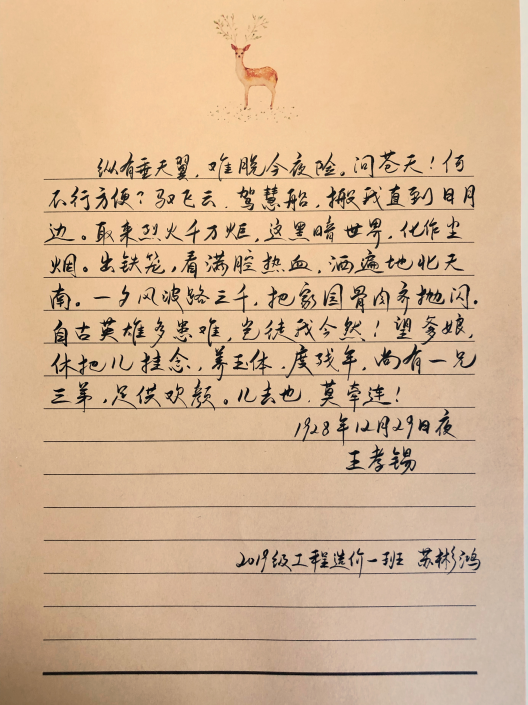 纵有垂天翼，难脱今夜险。问苍天！何
不行方便？驭飞云，驾慧船，搬我直到日月
边。取来烈火千万炬，这黑暗世界，化作尘
烟。出铁笼，看满腔热血，洒遍地北天
南。一夕风波路三千，把家国骨肉齐抛闪。
自古英雄多患难，岂徒我今然！望爹娘，
休把儿挂念，养玉体，度残年，尚有一兄
三弟，足供欢颜。儿去也，莫牵连！
1928年12月29日夜
王孝锡
2019级工程造价一班 苏彬鸿